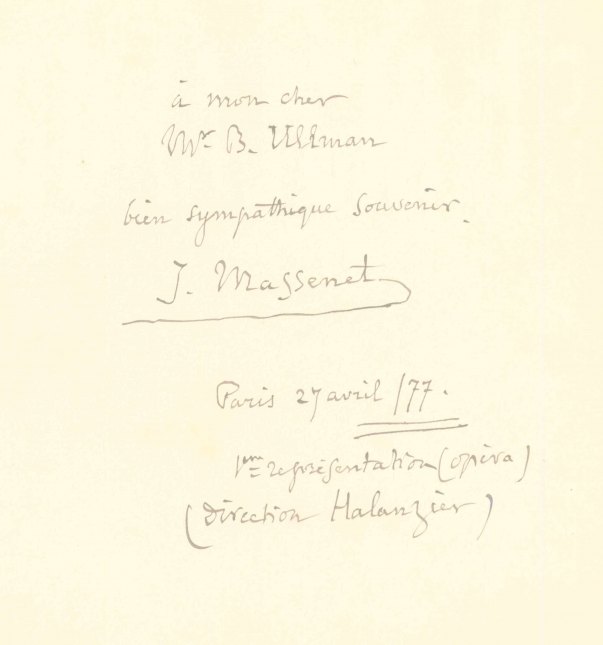 à mon cher
Mr. B. Ullman
bien sympathique souvenir.
J. Massenet
Paris 27 avril /77.
1ère représentation (opéra)
(direction Halanzier)